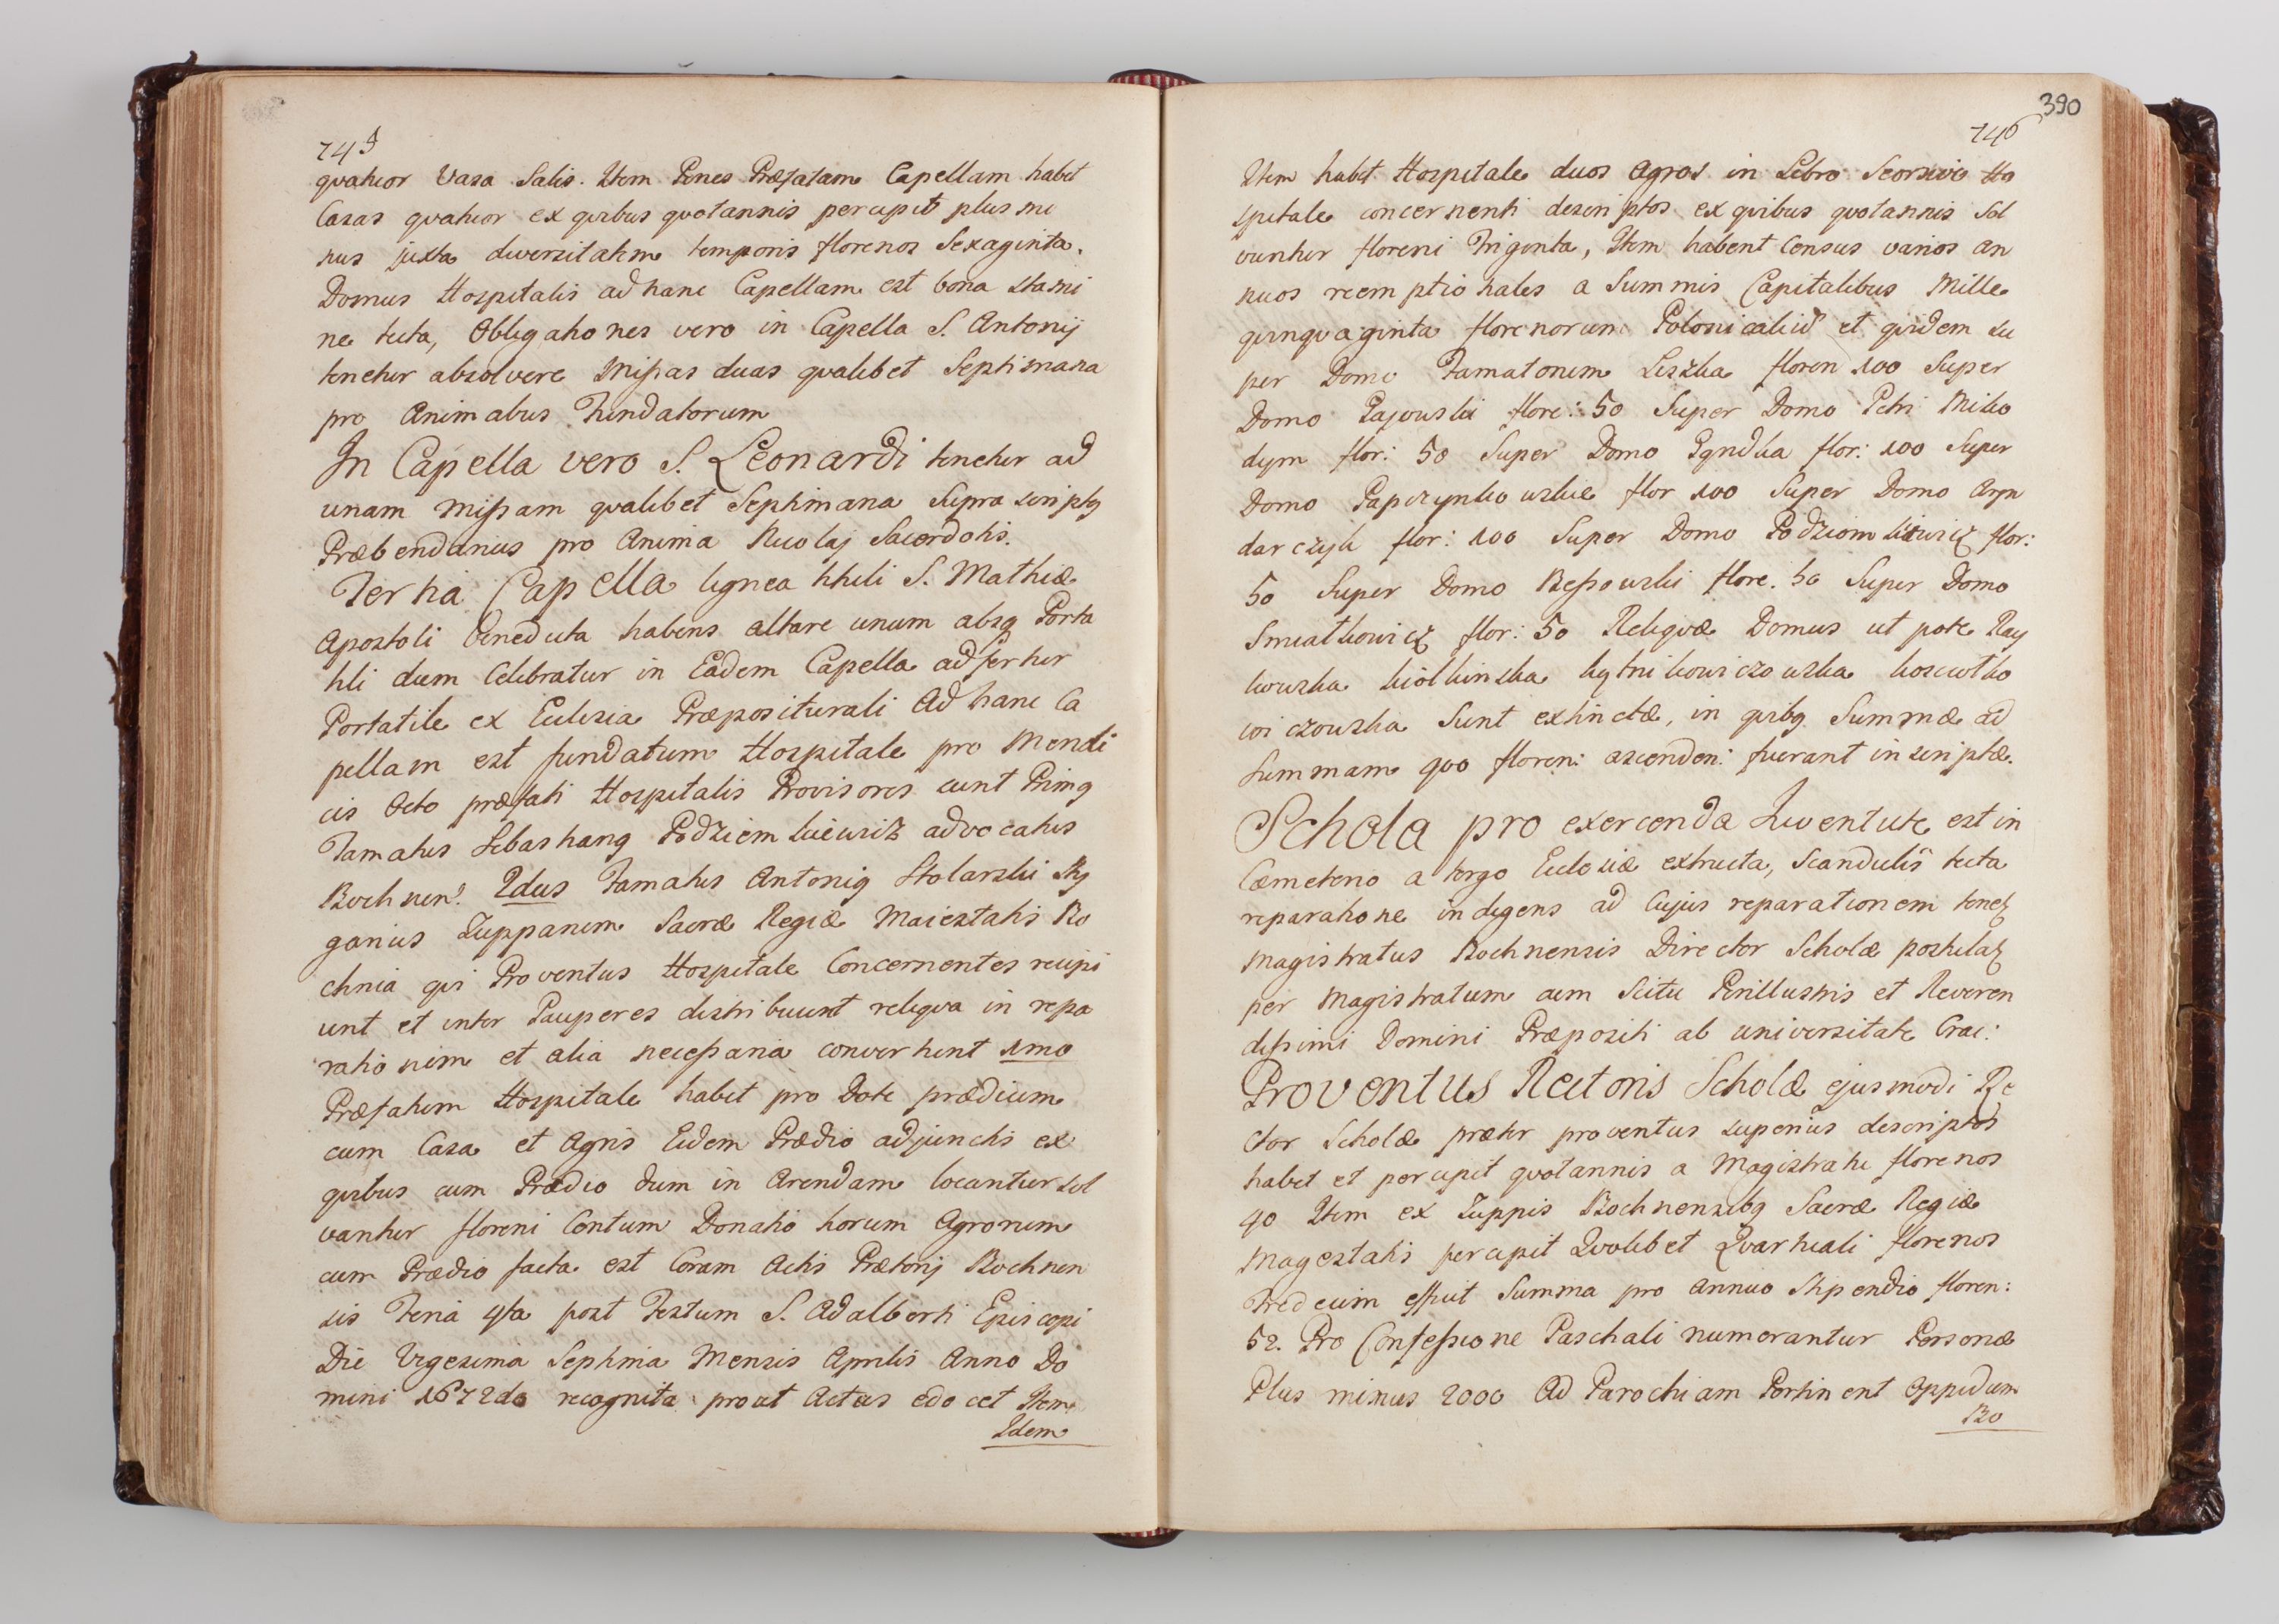 745
quatuor Vasa Salis. Item Penes Præfatam Capellam habet
Casas quatuor ex quibus quotannis percipit plus mi
nus juxta diversitatem temporis florenos Sexaginta.
Domus Hospitalis ad hanc Capellam est bona Strami
ne tecta, Obligationes vero in Capella S. Antonij
tenetur absolvere Missas duas qualibet Septimana
pro Animabus Fundatorum
In Capella vero S. Leonardi tenetur ad
unam Missam qualibet Septimana Supra scriptq
Præbendarius pro Anima Nicolaj Sacerdotis.
Tertia Capella lignea tituli S. Mathiæ
Apostoli Benedicta habens altare unum absq Porta
tili dum Celebratur in Eadem Capella adfertur
Portatile ex Ecclesia Præpositurali Ad hanc Ca
pellam est fundatum Hospitale pro Mendi
cis Octo præfati Hospitalis Provisores sunt Primq
Famatus Sebastianq Podziemkiewicz advocatus
Bochnen: 2dus Famatus Antoniq Stolarski Ry
gorius Zuppanum Sacræ Regiæ Maiestatis Bo
chnia qui Proventus Hospitale Concernentes recipi
unt et inter Pauperes distribuunt reliqua in repa
rationem et alia necessaria convertunt 1mo
Præfatum Hospitale habet pro Dote prædium
cum Casa et Agris Eidem Prædio adjunctis ex
quibus cum Prædio dum in Arendam locantur sol
vuntur floreni Centum Donatio horum Agrorum
cum Prædio facta est Coram Actis Prætorij Bochnen
sis Feria 4ta post Festum S. Adalberti Episcopi
Die Vigesima Septima Mensis Aprilis Anno Do
mini 1672do recognita prout Actus edocet Item
Idem
390
746
Item habet Hospitale duos Agros in Libro Seorsivo Ho
spitale concernenti descriptos ex quibus quotannis Sol
vuntur floreni Triginta, Item habent Census varios an
nuos reemptionales a Summis Capitalibus Mille
quinquaginta florenorum et quidem su
per Domo Famatorum Leszka floren 100 Super
Domo Pajowski flore: 50 Super Domo Petri Miko
dym flor: 50 Super Domo Pyndka flor: 100 Super
Domo flor 100 Super Domo Aryn
darczyk flor: 100 Super Domo Podziomkiewicz flor:
50 Super Domo Bessowski flore. 50 Super Domo
Smiatkowicz flor: 50 Reliquæ Domus ut pote Ray
kowska kiołkinska hytnikowiczowska
Sunt extinctæ, in quibq Summæ ad
Summam 900 floren: ascenden: fuerant inscriptæ.
Schola pro exercenda Juventute est in
Cæmeterio a tergo Ecclesiæ extructa, Scandulis tecta
reparatione indigens ad Cujus reparationem tenetz
Magistratus Bochnensis Director Scholæ postulatz
per Magistratum cum Scitu Perillustris et Reveren
dissimi Domini Præpositi ab universitate Crac:
Proventus Rectoris Scholæ ejusmodi Re
ctor Scholæ præter proventus superius descriptos
habet et percipit quotannis a Magistratu florenos
40 Item ex Zuppis Bochnensibq Sacræ Regiæ
Magestatis percipit Qvolibet Qvartuali florenos
Tredecim efficit Summa pro Annuo Stipendio floren:
52. Pro Confessione Paschali numerantur Personæ
Plus minus 2000 Ad Parochiam Pertinent Oppidum
Bo